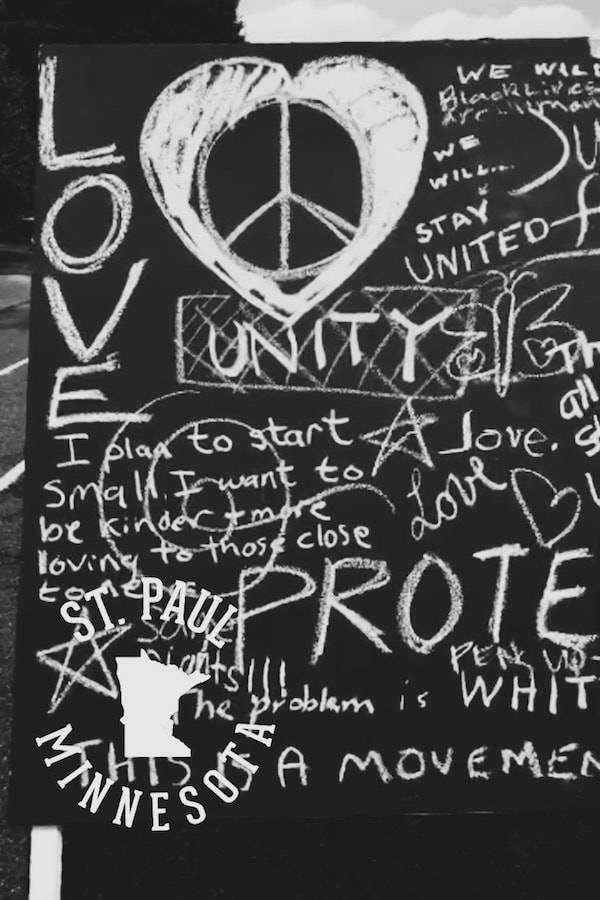 LOVE
WE WILL
Black Lives
WE
WILL...
STAY
UNITED
UNITY
I plan to start
small. I want to
be kinder + more
loving to those close
to me
love.
Love
all
PROTE
save
plants!!!
The problem is WHIT
THIS IS A MOVEMEN
ST. PAUL
MINNESOTA